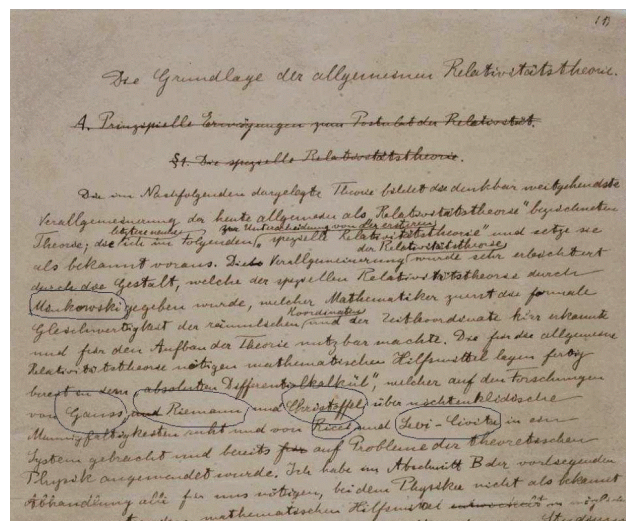 (1)
Die Grundlage der allgemeinen Relativitätstheorie.
A. Prinzipielle Erwägungen zum Postulat der Relativität.
§1. Die spezielle Relativitätstheorie.
Die im Nachfolgenden dargelegte Theorie bildet die denkbar weitgehendste
Verallgemeinerung der heute allgemein als „Relativitätstheorie" bezeichneten
letztere nenne zur Unterscheidung von der ersteren
Theorie; die ich im Folgenden „spezielle Relativitätstheorie" und setze sie
der Relativitätstheorie
als bekannt voraus. Die Verallgemeinerung wurde sehr erleichtert
durch die Gestalt, welche der speziellen Relativitätstheorie durch
Minkowski gegeben wurde, welcher Mathematiker zuerst die formale
Koordinaten
Gleichwertigkeit der räumlichen und der Zeitkoordinate klar erkannte
und für den Aufbau der Theorie nutzbar machte. Die für die allgemeine
Relativitätstheorie nötigen mathematischen Hilfsmittel lagen fertig
bereit in dem „absoluten Differentialkalkül", welcher auf den Forschungen
von Gauss und Riemann und Christoffel über nichteuklidische
Mannigfaltigkeiten ruht und von Ricci und Levi-Civita in ein
System gebracht und bereits auf Probleme der theoretischen
Physik angewendet wurde. Ich habe im Abschnitt B der vorliegenden
Abhandlung alle für uns nötigen, bei dem Physiker nicht als bekannt
mathematischen Hilfsmittel